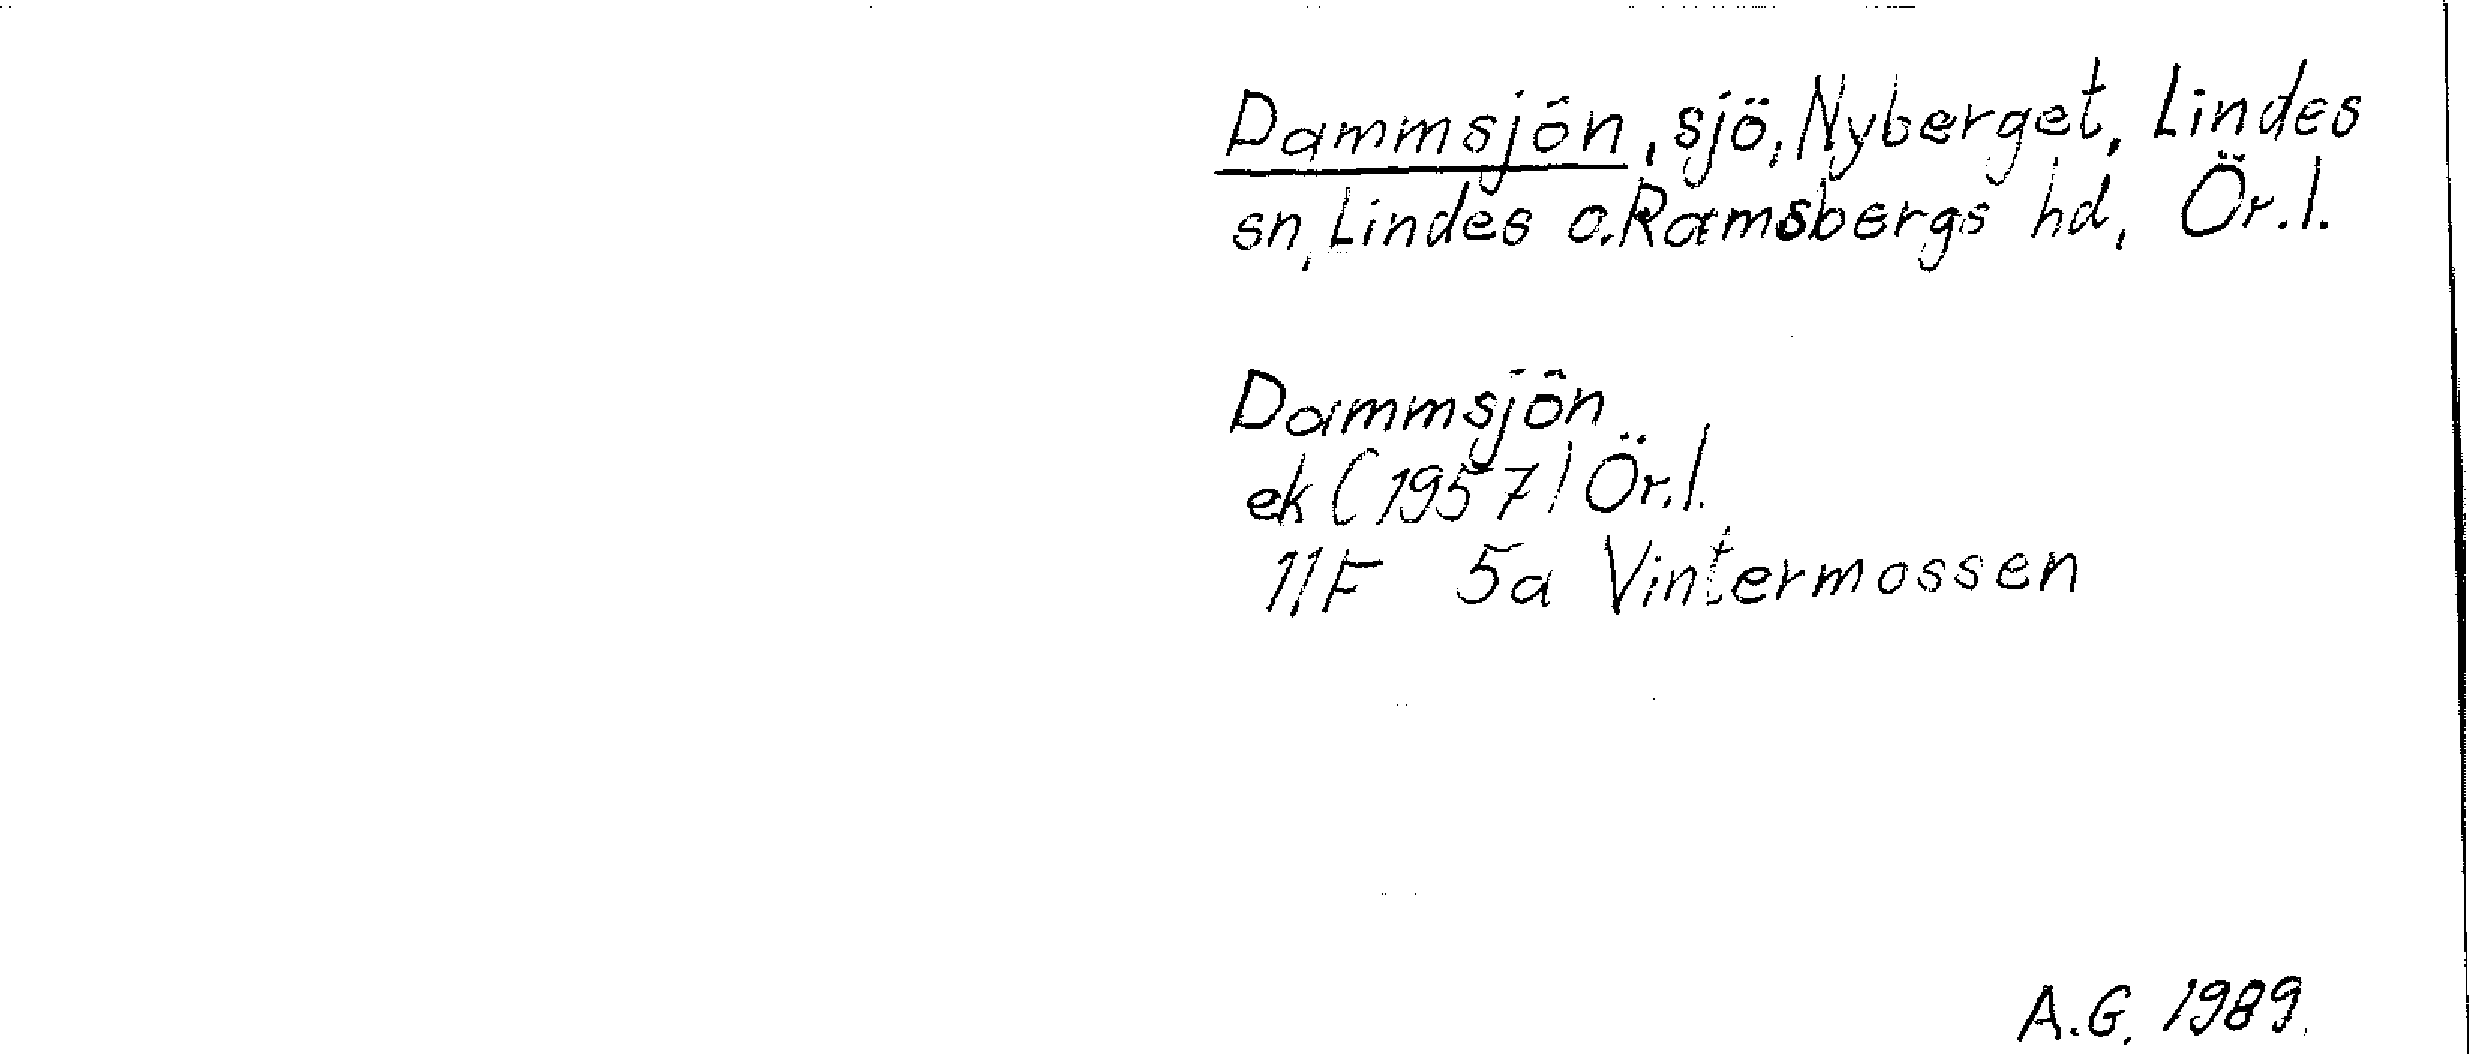 Dammsjön, sjö, Nyberget, Lindes
sn, Lindes o. Ramsbergs hd, Ör.l.
Dammsjön
ek (1957) Ör.l.
11F 5a Vintermossen
A.G. 1989.